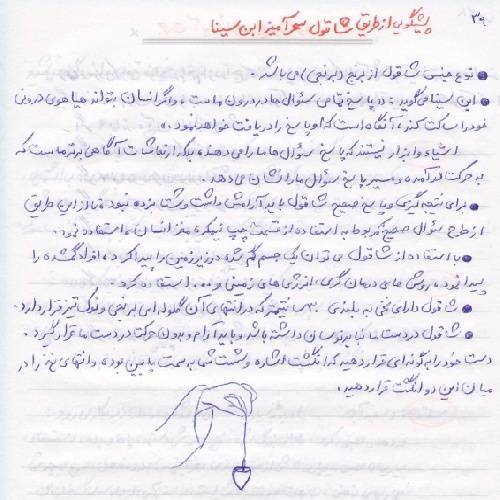 ۳۶
پیشگویی از طریق شاقول سحرآمیز ابن سینا
• نوع جنس شاقول از برنج (برنجی) می باشد.
• ابن سینا می گوید: «پاسخ تمامی سئوال ها در درون ماست، و اگر انسان بتواند هیاهوی درونی
خود را ساکت کند، آنگاه است که او پاسخ را دریافت خواهد نمود.»
اشیاء و ابزار نیستند که پاسخ سئوال ها ما را می دهند، بلکه ارتعاشات آگاهی برتر ماست که
به حرکت درآمده و مسیر پاسخ سئوال ما را نشان می دهد.
• برای نتیجه گیری و پاسخ صحیح شاقول باید آرامش داشت و شتابزده نبود تا از این طریق
از طرح سئوال صحیح که مربوط به استفاده از قسمت چپ نیمکره مغز انسان، استفاده نمود.
• با استفاده از شاقول می توان یک جسم گم شده در زیر زمین را پیدا کرد، افراد گمشده را
پیدا نمود، روش های درمان گری، انرژی های زمینی و ... استفاده کرد.
• شاقول دارای نخی به بلندی سانتیمتر که در انتهای آن گلوله ای برنجی و نوک تیز قرار دارد.
• شاقول در دست ما نباید نوسان داشته باشد و باید آرام و بدون حرکت در دست ما قرار گیرد.
دست خود را به گونه ای قرار دهید که انگشت اشاره و شست شما به سمت پایین بوده، و انتهای نخ را در
میان این دو انگشت قرار دهید.